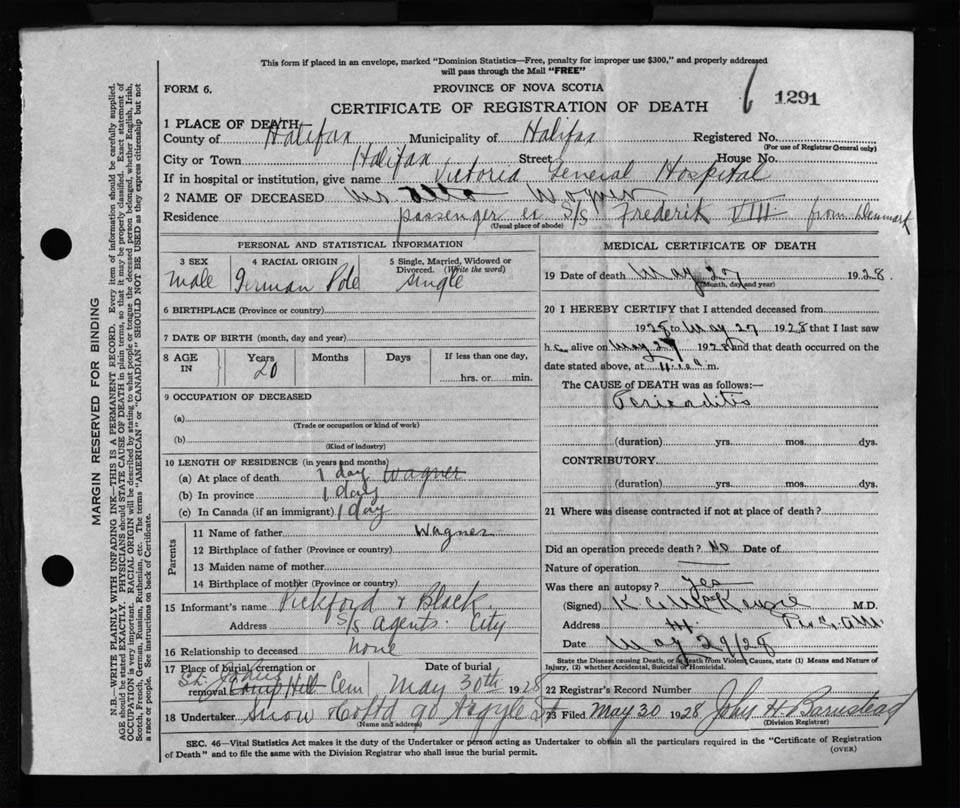 This form if placed in an envelope, marked "Dominion Statistics—Free, penalty for improper use $300," and properly addressed
will pass through the Mail "FREE"
FORM 6.
PROVINCE OF NOVA SCOTIA
CERTIFICATE OF REGISTRATION OF DEATH
6 1291
1 PLACE OF DEATH
County of Halifax Municipality of Halifax Registered No.
(For use of Registrar General only)
City or Town Halifax Street House No.
If in hospital or institution, give name Victoria General Hospital
2 NAME OF DECEASED Mr Otto Wagner
Residence passenger ex S/S Frederik VIII from Denmark
(Usual place of abode)
PERSONAL AND STATISTICAL INFORMATION
3 SEX
male
4 RACIAL ORIGIN
German Pole
5 Single, Married, Widowed or
Divorced. (Write the word)
single
6 BIRTHPLACE (Province or country)
7 DATE OF BIRTH (month, day and year)
8 AGE IN
Years 20 Months Days If less than one day,
hrs. or min.
9 OCCUPATION OF DECEASED
(a)
(Trade or occupation or kind of work)
(b)
(Kind of industry)
10 LENGTH OF RESIDENCE (in years and months)
(a) At place of death 1 day Wagner
(b) In province 1 day
(c) In Canada (if an immigrant) 1 day
Parents
11 Name of father Wagner
12 Birthplace of father (Province or country)
13 Maiden name of mother
14 Birthplace of mother (Province or country)
15 Informant's name Pickford & Black
Address S/S agents. City
16 Relationship to deceased none
17 Place of burial, cremation or Date of burial
St. Johns
removal Camp Hill Cem May 30th 1928
18 Undertaker Snow & Co Ltd 90 Argyle St
(Name and address)
MEDICAL CERTIFICATE OF DEATH
19 Date of death May 27 1928.
(Month, day and year)
20 I HEREBY CERTIFY that I attended deceased from
1928 to May 27 1928 that I last saw
h alive on May 27 1928 and that death occurred on the
date stated above, at 11 m.
The CAUSE OF DEATH was as follows:—
Pericaditis
(duration) yrs. mos. dys.
CONTRIBUTORY
(duration) yrs. mos. dys.
21 Where was disease contracted if not at place of death?
Did an operation precede death? No Date of
Nature of operation
Was there an autopsy? yes
(Signed) K McKenzie M.D.
Address
Date May 29/28
State the Disease causing Death, or in death from Violent Causes, state (1) Means and Nature of
Injury, (2) whether Accidental, Suicidal or Homicidal.
22 Registrar's Record Number
23 Filed May 30 1928 John H. Barnstead
(Division Registrar)
SEC. 46—Vital Statistics Act makes it the duty of the Undertaker or person acting as Undertaker to obtain all the particulars required in the "Certificate of Registration
of Death" and to file the same with the Division Registrar who shall issue the burial permit.
(OVER)
MARGIN RESERVED FOR BINDING
N.B.—WRITE PLAINLY WITH UNFADING INK—THIS IS A PERMANENT RECORD. Every item of information should be carefully supplied.
AGE should be stated EXACTLY. PHYSICIANS should STATE CAUSE OF DEATH in plain terms, so that it may be properly classified. Exact statement of
OCCUPATION is very important. RACIAL ORIGIN will be described by stating to what people or tongue the deceased person belonged, whether English, Irish,
Scotch, French, German, Russian, Ruthenian, etc. The terms "AMERICAN" or "CANADIAN" SHOULD NOT BE USED as they express citizenship but not
a race or people. See instructions on back of Certificate.